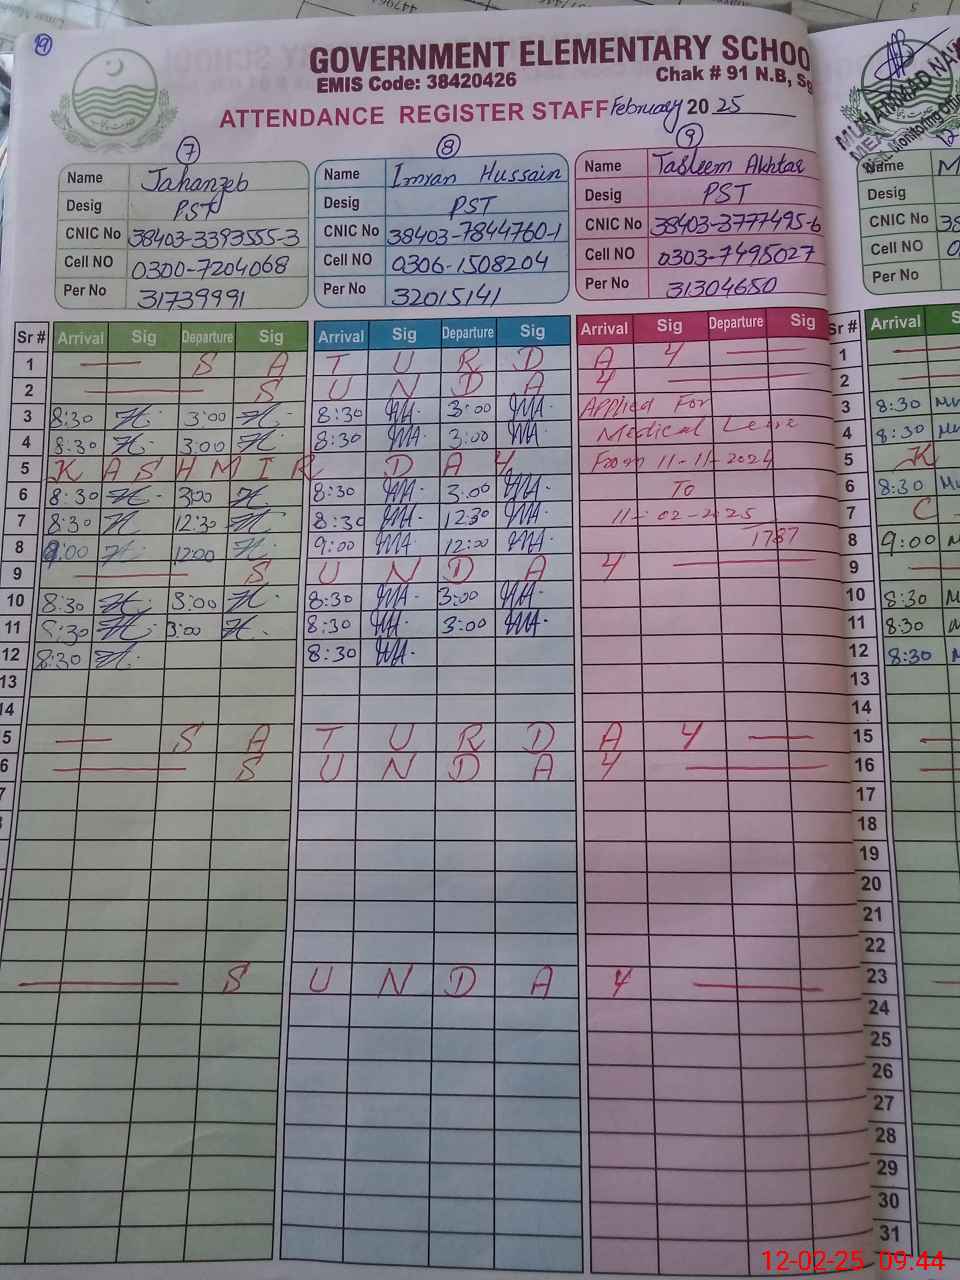 19
GOVERNMENT ELEMENTARY SCHOO
EMIS Code: 38420426
Chak # 91 N.B, Sg
ATTENDANCE REGISTER STAFF February 20 25
7 8 9
Name Jahanzeb Name Imran Hussain Name Tasleem Akhtar Name M
Desig PST Desig PST Desig PST Desig
CNIC No 38403-3393555-3 CNIC No 38403-7844760-1 CNIC No 38403-3777495-6 CNIC No 38
Cell NO 0300-7204068 Cell NO 0306-1508204 Cell NO 0303-7495027 Cell NO 0
Per No 31739991 Per No 32015141 Per No 31304650 Per No
Sr # Arrival Sig Departure Sig Arrival Sig Departure Sig Arrival Sig Departure Sig Sr # Arrival S
1 — S A T U R D A Y — 1 —
2 — S U N D A Y — 2 —
3 8:30 3:00 8:30 3:00 Applied For 3 8:30
4 8:30 3:00 8:30 3:00 Medical Leve 4 8:30
5 K A S H M I R D A Y From 11-11-2024 5 K
6 8:30 3:00 8:30 3:00 To 6 8:30
7 8:30 12:30 8:30 12:30 11-02-2025 7 C
8 9:00 12:00 9:00 12:00 1787 8 9:00
9 — S U N D A Y — 9 —
10 8:30 3:00 8:30 3:00 10 8:30
11 8:30 3:00 8:30 3:00 11 8:30
12 8:30 8:30 12 8:30
13 13
14 14
5 — S A T U R D A Y — 15 —
6 — S U N D A Y — 16 —
7 17
18
19
20
21
22
— S U N D A Y — 23 —
24
25
26
27
28
29
30
31
12-02-25 09:44